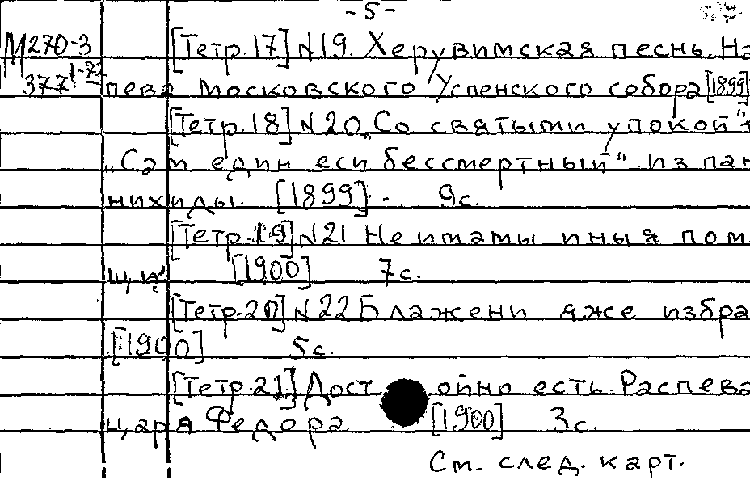 -5-
М270-3 [Тетр.17] N19. Херувимская песнь. На
377 1-22 пева Московского Успенского собора [1899]
[Тетр.18] N20 „Со святыми упокой"
„Сам един еси бессмертный" из пан
нихиды. [1899] - 9с.
[Тетр.19] N21 Не имамы иныя пом
щи" [1900] 7с.
[Тетр.20] N22 Блажени яже избра
[1900] 5с.
[Тетр.21] Достойно есть. Распева
царя Федора [1900] 3с.
См. след. карт.